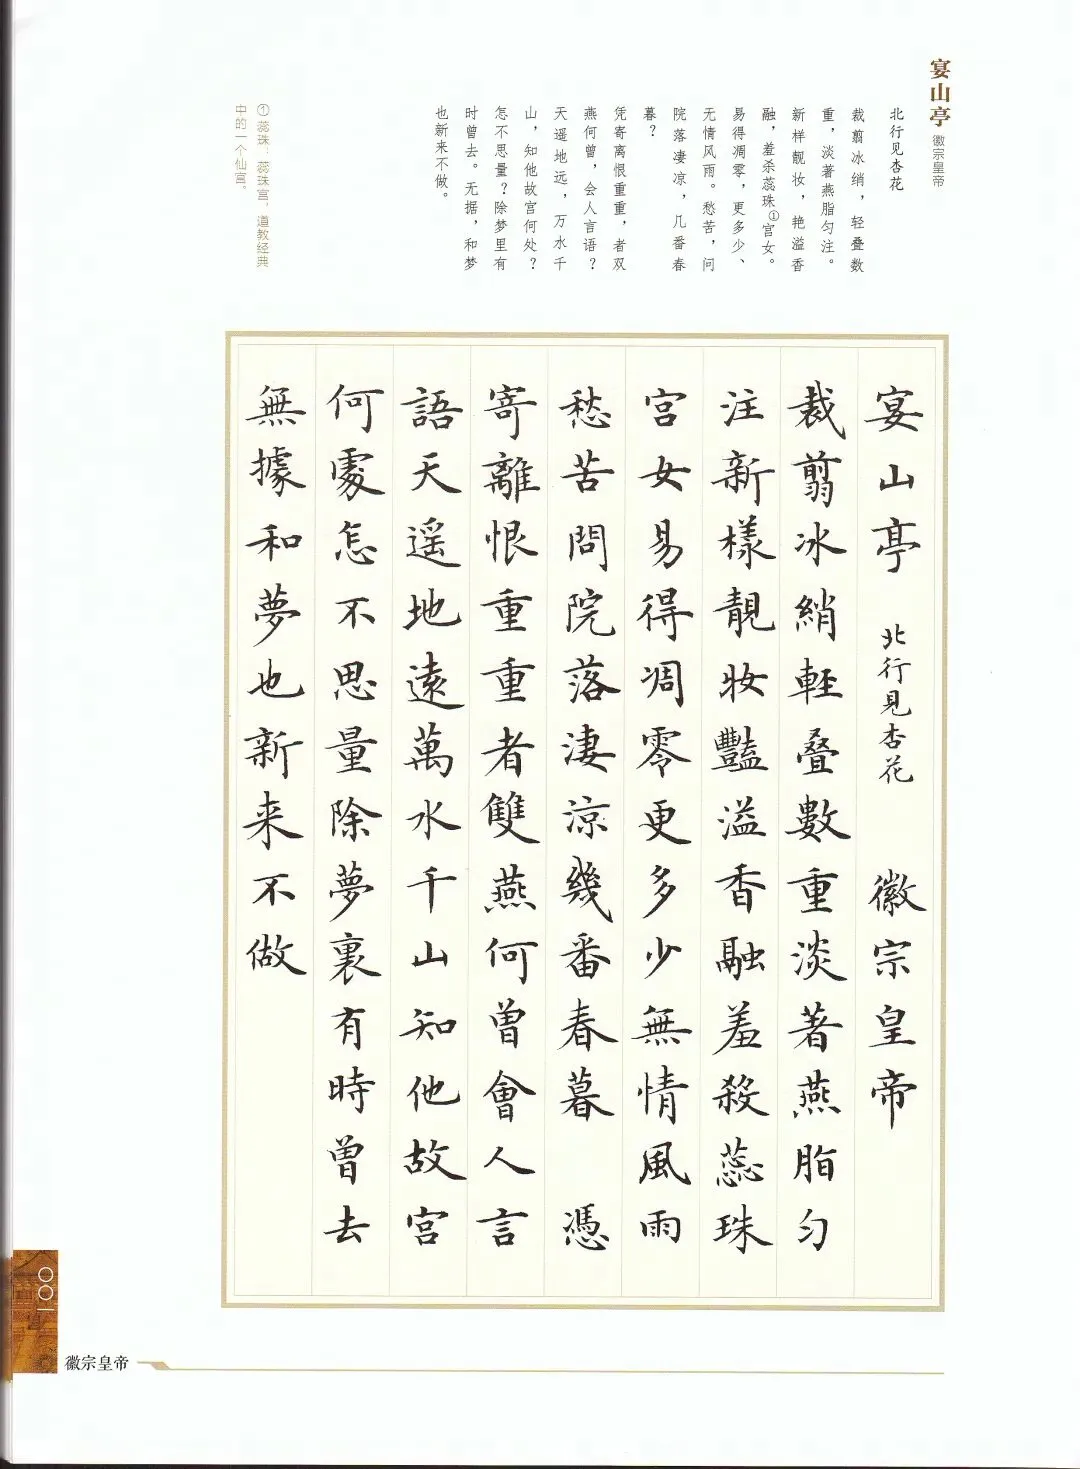 宴山亭 徽宗皇帝
北行见杏花
裁翦冰绡，轻叠数
重，淡著燕脂匀注。
新样靓妆，艳溢香
融，羞杀蕊珠①宫女。
易得凋零，更多少、
无情风雨。愁苦，问
院落凄凉，几番春
暮？
凭寄离恨重重，者双
燕何曾，会人言语？
天遥地远，万水千
山，知他故宫何处？
怎不思量？除梦里有
时曾去。无据，和梦
也新来不做。
①蕊珠：蕊珠宫，道教经典
中的一个仙宫。
宴山亭 北行見杏花 徽宗皇帝
裁翦冰綃輕叠數重淡著燕脂匀
注新樣靚妝豔溢香融羞殺蕊珠
宫女易得凋零更多少無情風雨
愁苦問院落淒涼幾番春暮 憑
寄離恨重重者雙燕何曾會人言
語天遥地遠萬水千山知他故宫
何處怎不思量除夢裏有時曾去
無據和夢也新来不做
〇〇一
徽宗皇帝